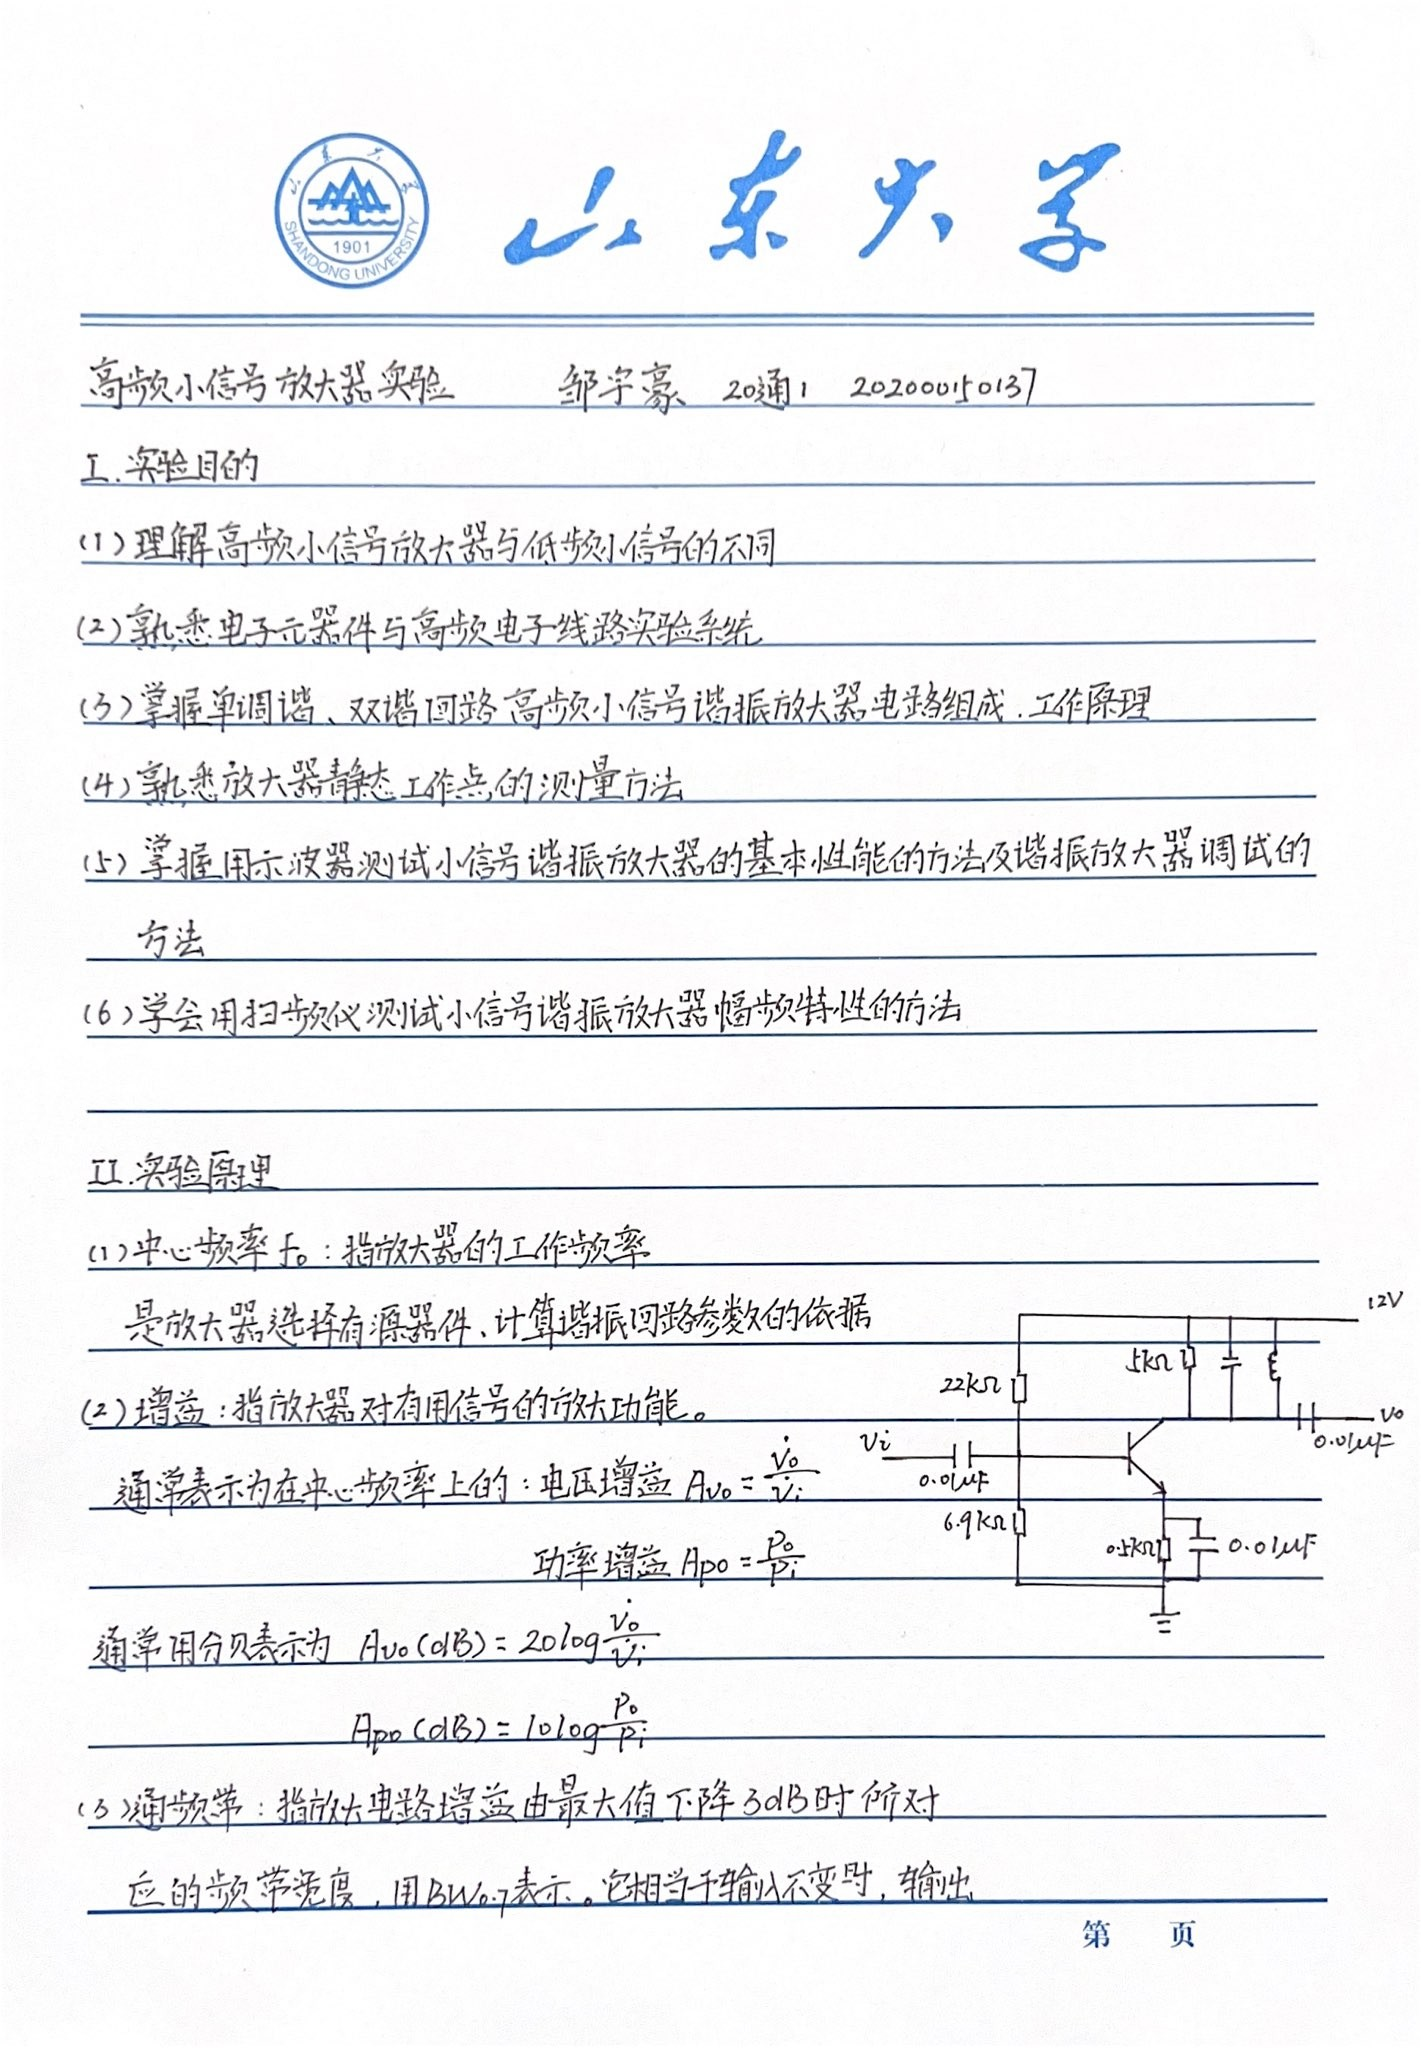 山东大学
山东大学
1901
SHANDONG UNIVERSITY
高频小信号放大器实验 邹宇豪 20通1 202000150137
I.实验目的
(1)理解高频小信号放大器与低频小信号的不同
(2)熟悉电子元器件与高频电子线路实验系统
(3)掌握单调谐、双谐回路高频小信号谐振放大器电路组成.工作原理
(4)熟悉放大器静态工作点的测量方法
(5)掌握用示波器测试小信号谐振放大器的基本性能的方法及谐振放大器调试的
方法
(6)学会用扫频仪测试小信号谐振放大器幅频特性的方法
II.实验原理
(1)中心频率f₀:指放大器的工作频率
是放大器选择有源器件、计算谐振回路参数的依据
(2)增益:指放大器对有用信号的放大功能。
通常表示为在中心频率上的:电压增益 Avo = V̇o/V̇i
功率增益 Apo = Po/Pi
通常用分贝表示为 Avo(dB) = 20log V̇o/V̇i
Apo(dB) = 10log Po/Pi
12V
5kΩ
22kΩ
Vo
0.01μF
Vi
0.01μF
6.9kΩ
0.5kΩ
0.01μF
(3)通频带:指放大电路增益由最大值下降3dB时所对
应的频带宽度,用BW0.7表示。它相当于输入不变时,输出
第 页